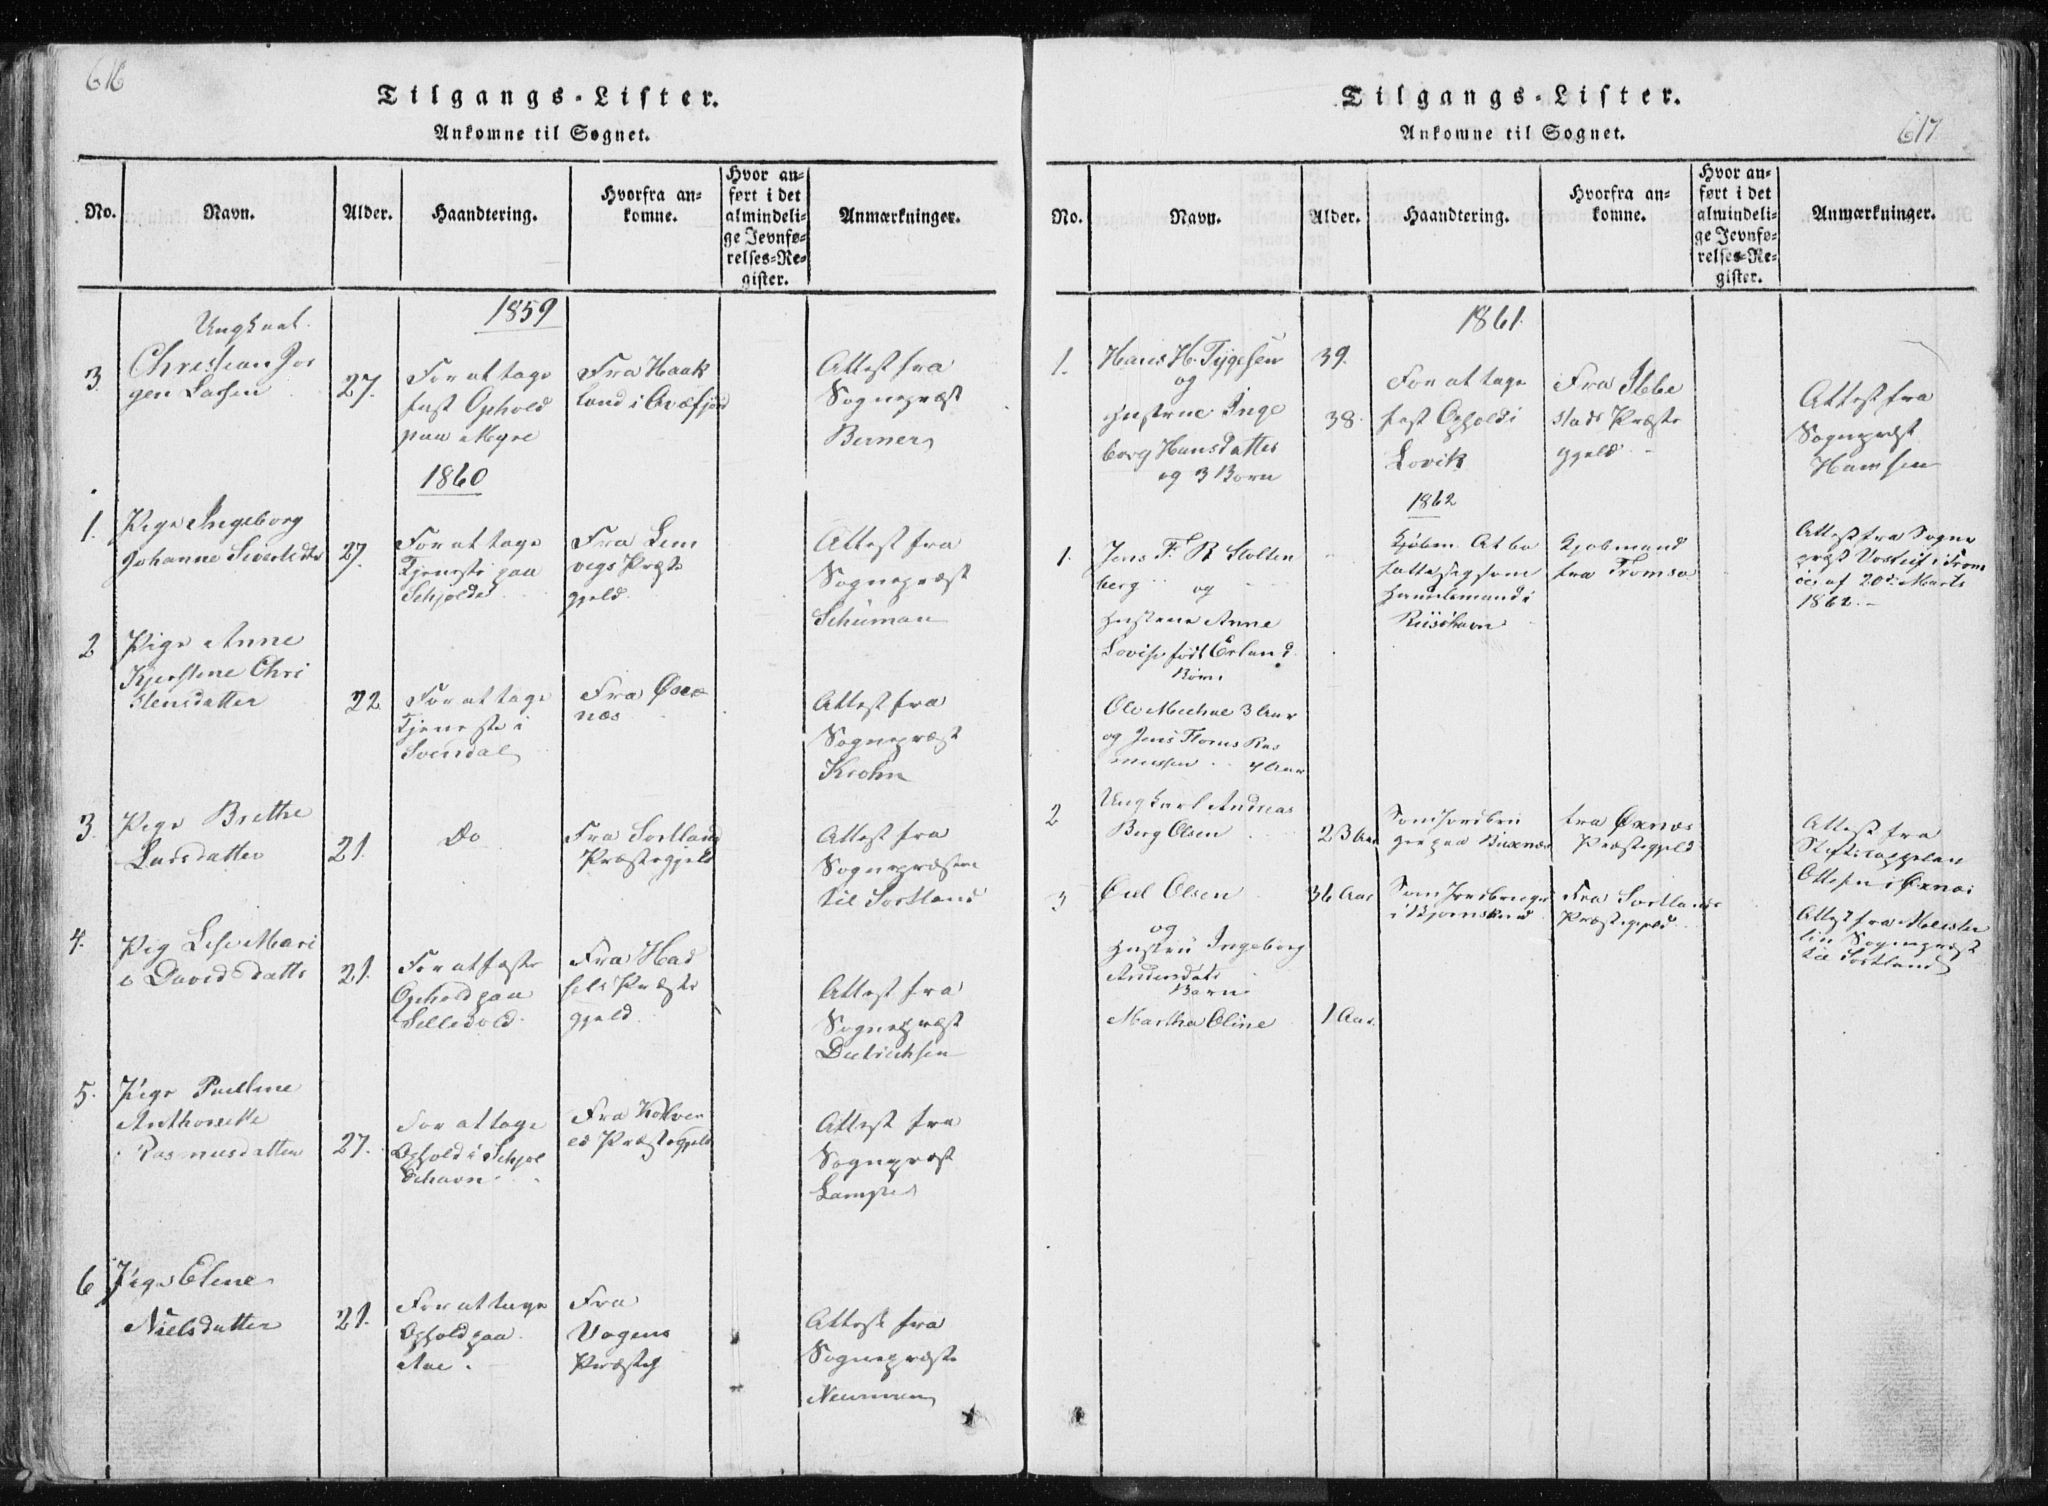 616
Tilgangs-Lister.
Ankomne til Sognet.
No.
Navn.
Alder.
Haandtering.
Hvorfra an-
komne.
Hvor an-
ført i det
almindeli-
ge Jevnfø-
relses-Re-
gister.
Anmærkninger.
1859
3
Ungkarl
Christian Jør
gen Larsen
27.
For at tage
fast Ophold
paa Myre
Fra Haak
land i Qvæfjord
Attest fra
Sognepræst
Berner
1860
1.
Pige Ingeborg
Johanne Sivertsdtr
27.
For at tage
Tjeneste paa
Fra Lem
vigs Præste
gjeld.
Attest fra
Sognepræst
Schüman
2
Pige Anne
Kjerstine Chri
stensdatter
22
For at tage
Tjeneste i
Svendal
Fra Øxe
næs
Attest fra
Sognepræst
Krohn
3.
Pige Brethe
Larsdatter
21.
Do
Fra Sortland
Præstegjeld
Attest fra
Sognepræsten
til Sortland
4.
Pig Lise Mari
e Davidsdatter
21.
For at faste
Ophold paa
Fra Had
sels Præste
gjeld.
Attest fra
Sognepræst
Dietrichsen
5.
Pige Pauline
Anthonette
Rasmusdatter
27.
For at tage
Ophold i Skjol
dehavn
Præstegjeld
Attest fra
Sognepræst
6
Pige Eline
Nielsdatter
21.
For at tage
Ophold paa
Aae.
Fra
Vagens
Præsteg
Attest fra
Sognepræst
Neumann
617
Tilgangs-Lister.
Ankomne til Sognet.
No.
Navn.
Alder.
Haandtering.
Hvorfra an-
komne.
Hvor an-
ført i det
almindeli-
ge Jevnfø-
relses-Re-
gister.
Anmærkninger.
1861.
1.
Hans H. Tygesen
og
Hustrue Inge
borg Hansdatter
og 3 Børn
39.
38.
For at tage
fast Ophold i
Lovik
Fra Ibbe
stads Præste
gjeld
Attest fra
Sognepræst
1862
1.
Jens F. R Stolten
berg og
Hustrue Anne
Lovise født Erland.
Børn
Ole Michal 3 Aar
og Jens Ras
mussen
Kjøbm. At be
sætte sig som
Handelsmand i
Riisøhavn
Kjøbmand
fra Tromsø
Attest fra Sogne
præst i Trom
af 20de Marts
1862.
2
Ungkarl Andreas
Berg Olsen
23 Aar
Som Jordbru
ger paa
fra Øxnæs
Præstegjeld
Attest fra
Stiftscappelan
Ottesen i Øxnæs
3
Olsen
og
Hustru Ingeborg
Andersdatr
Børn
Martha Oline
36 Aar
1 Aar.
Som Jordbruger
i Bjørnskind
Fra Sortlands
Præstegjeld
Attest fra
Sognepræst
til Sortland